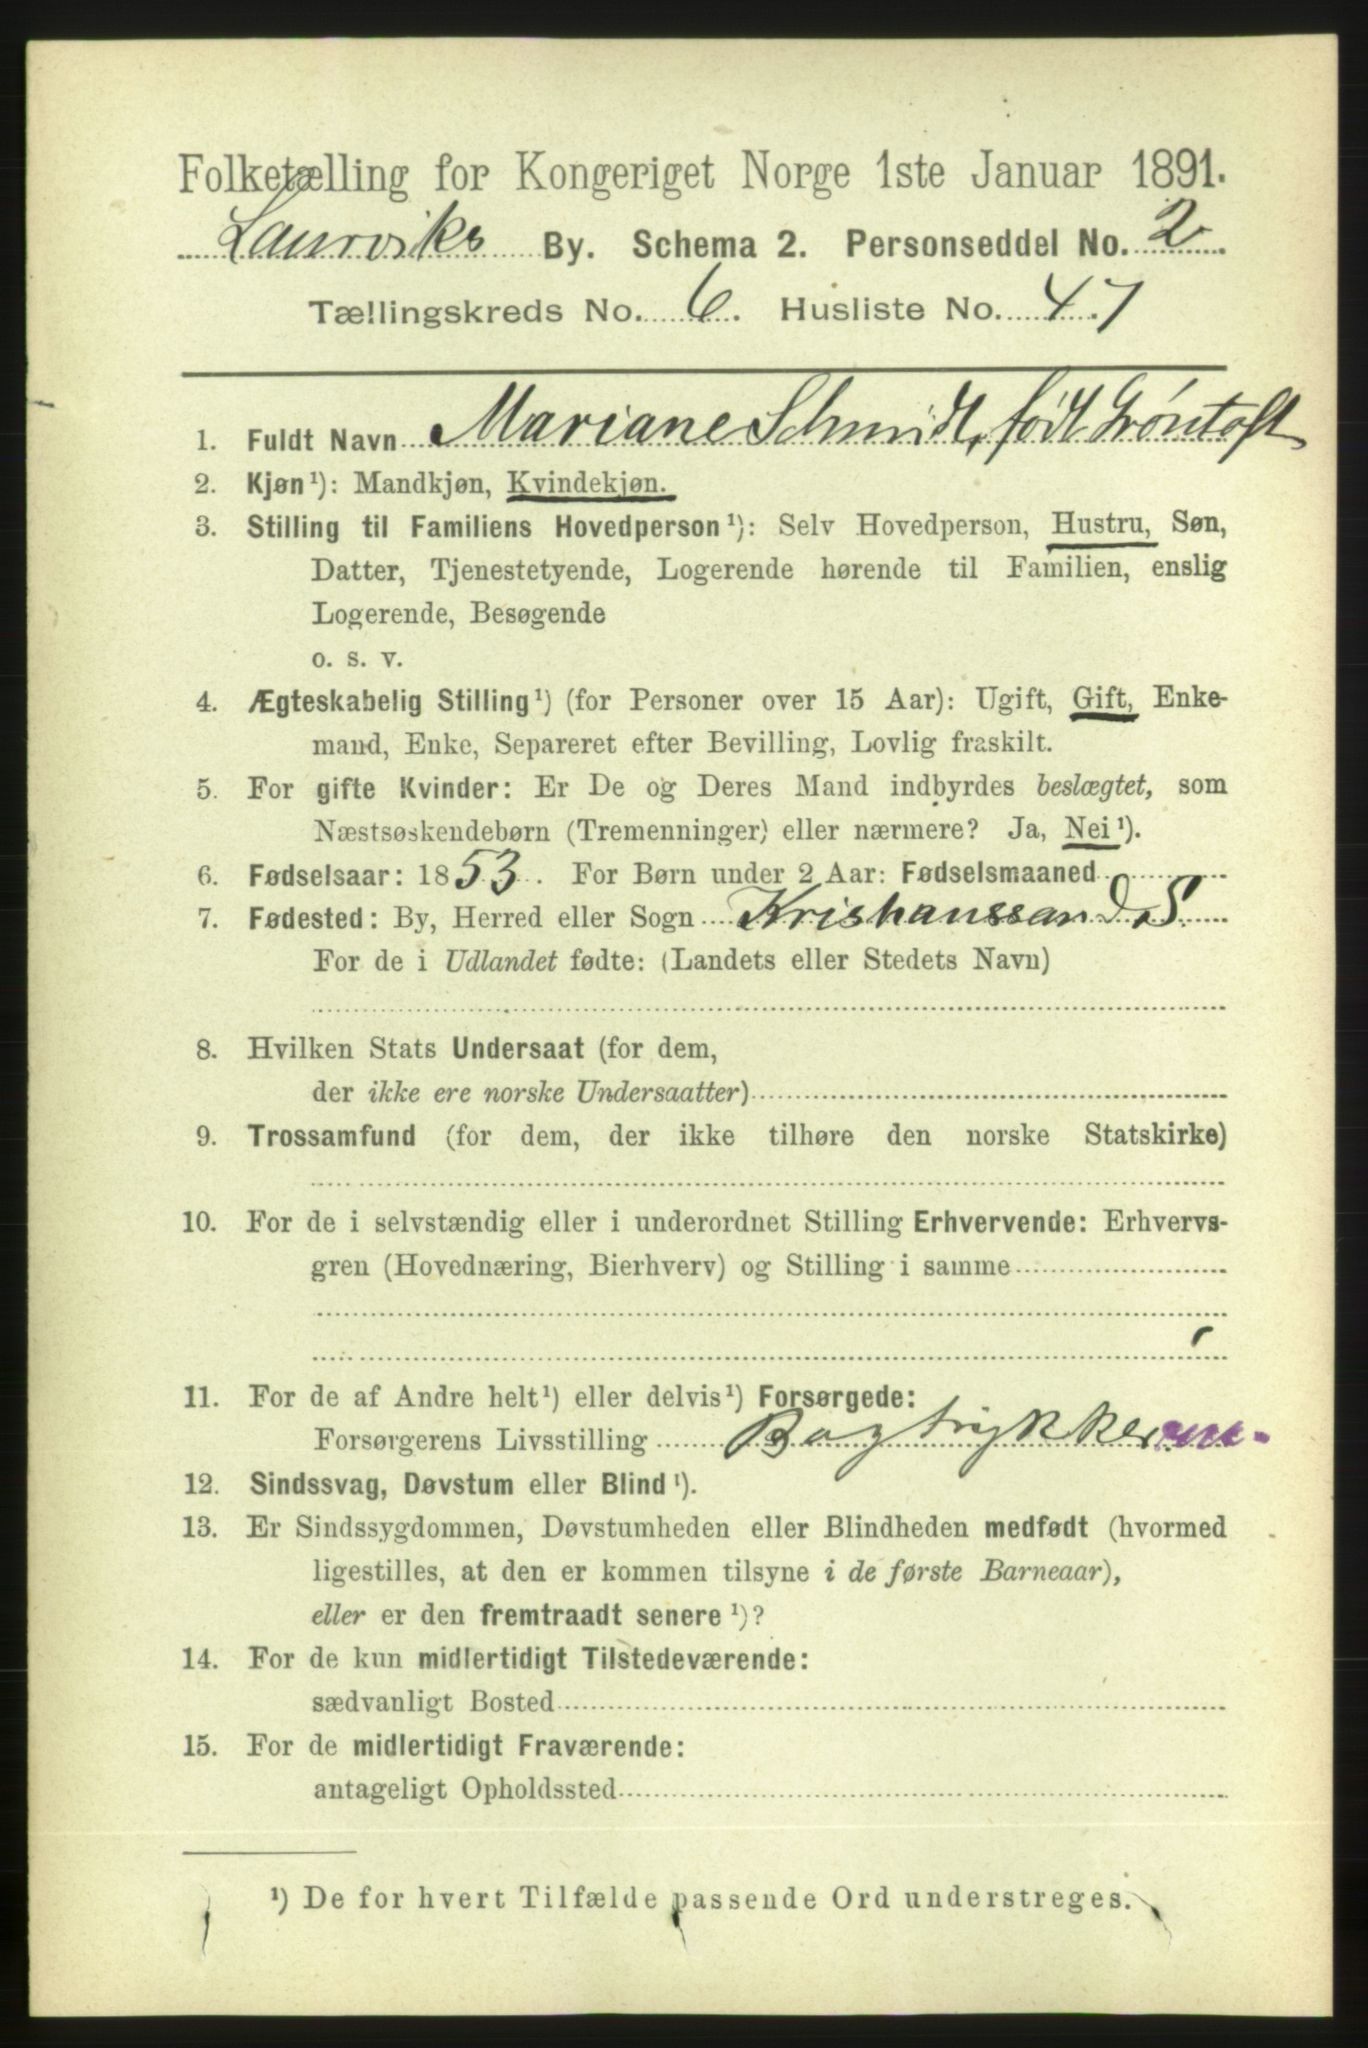 Folketælling for Kongeriget Norge 1ste Januar 1891.
Laurviks By. Schema 2. Personseddel No. 2
Tællingskreds No. 6. Husliste No. 47
1. Fuldt Navn Mariane Schmidt, født Grøntoft
2. Kjøn¹): Mandkjøn, Kvindekjøn.
3. Stilling til Familiens Hovedperson¹): Selv Hovedperson, Hustru, Søn,
Datter, Tjenestetyende, Logerende hørende til Familien, enslig
Logerende, Besøgende
o. s. v.
4. Ægteskabelig Stilling¹) (for Personer over 15 Aar): Ugift, Gift, Enke-
mand, Enke, Separeret efter Bevilling, Lovlig fraskilt.
5. For gifte Kvinder: Er De og Deres Mand indbyrdes beslægtet, som
Næstsøskendebørn (Tremenninger) eller nærmere? Ja, Nei¹).
6. Fødselsaar: 1853. For Børn under 2 Aar: Fødselsmaaned
7. Fødested: By, Herred eller Sogn Kristianssand S.
For de i Udlandet fødte: (Landets eller Stedets Navn)
8. Hvilken Stats Undersaat (for dem,
der ikke ere norske Undersaatter)
9. Trossamfund (for dem, der ikke tilhøre den norske Statskirke)
10. For de i selvstændig eller i underordnet Stilling Erhvervende: Erhvervs-
gren (Hovednæring, Bierhverv) og Stilling i samme
11. For de af Andre helt¹) eller delvis¹) Forsørgede:
Forsørgerens Livsstilling Bogtrykker m.
12. Sindssvag, Døvstum eller Blind¹).
13. Er Sindssygdommen, Døvstumheden eller Blindheden medfødt (hvormed
ligestilles, at den er kommen tilsyne i de første Barneaar),
eller er den fremtraadt senere¹)?
14. For de kun midlertidigt Tilstedeværende:
sædvanligt Bosted
15. For de midlertidigt Fraværende:
antageligt Opholdssted
¹) De for hvert Tilfælde passende Ord understreges.